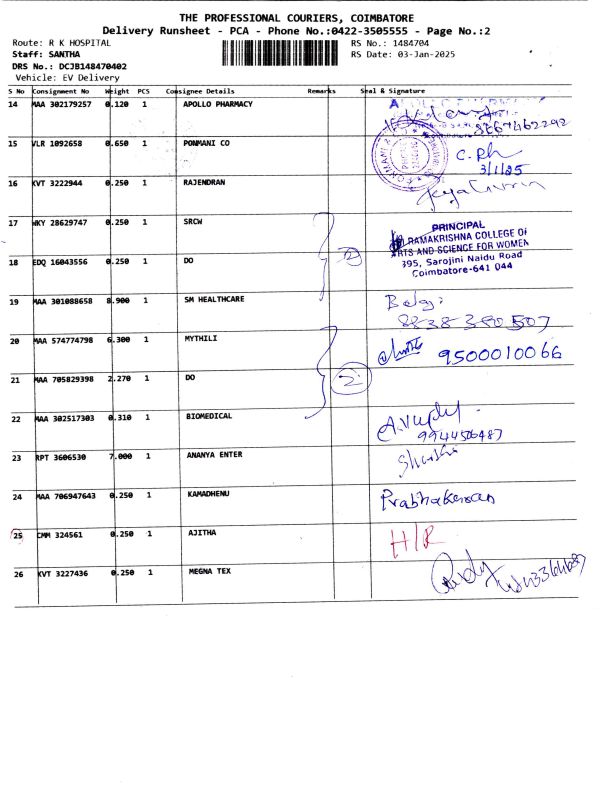 THE PROFESSIONAL COURIERS, COIMBATORE
Delivery Runsheet - PCA - Phone No.:0422-3505555 - Page No.:2
Route: R K HOSPITAL RS No.: 1484704
Staff: SANTHA RS Date: 03-Jan-2025
DRS No.: DCJB148470402
Vehicle: EV Delivery
S No Consignment No Weight PCS Consignee Details Remarks Seal & Signature
14 MAA 302179257 0.120 1 APOLLO PHARMACY
8667462292
15 VLR 1092658 0.650 1 PONMANI CO C. Rh
3/1/25
16 KVT 3222944 0.250 1 RAJENDRAN
17 WKY 28629747 0.250 1 SRCW PRINCIPAL
RAMAKRISHNA COLLEGE OF
ARTS AND SCIENCE FOR WOMEN
395, Sarojini Naidu Road
Coimbatore-641 044
18 EDQ 16043556 0.250 1 DO 2
19 MAA 301088658 8.900 1 SM HEALTHCARE
8838380507
20 MAA 574774798 6.300 1 MYTHILI 9500010066
21 MAA 705829398 2.270 1 DO 2
22 MAA 302517303 0.310 1 BIOMEDICAL
9944506487
23 RPT 3606530 7.000 1 ANANYA ENTER
24 MAA 706947643 0.250 1 KAMADHENU Prabhakaran
25 CMM 324561 0.250 1 AJITHA H/R
26 KVT 3227436 0.250 1 MEGNA TEX